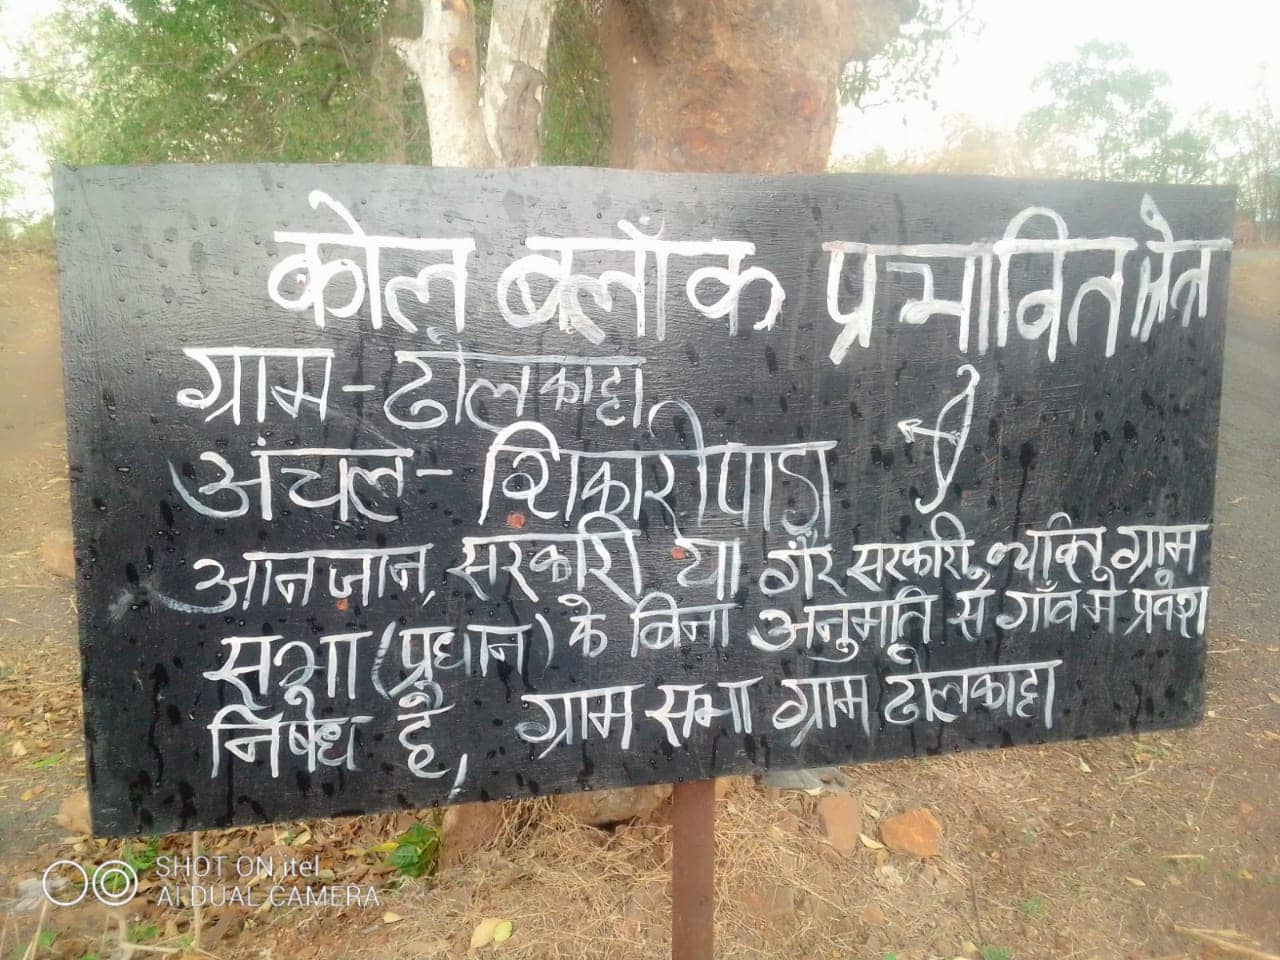 कोल ब्लॉक प्रभावित क्षेत्र
ग्राम - ढोलकाट्टा
अंचल - शिकारीपाड़ा
आनजान, सरकारी या गैर सरकारी, व्यक्ति ग्राम
सभा (प्रधान) के बिना अनुमति से गाँव में प्रवेश
निषेध है, ग्राम सभा ग्राम ढोलकाट्टा
SHOT ON itel
AI DUAL CAMERA